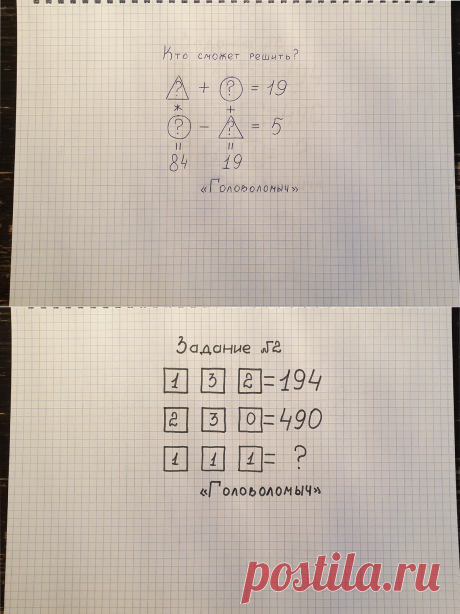 Кто сможет решить?
? + ? = 19
* +
? - ? = 5
= =
84 19
«Головоломыч»
Задание №2
1 3 2 = 194
2 3 0 = 490
1 1 1 = ?
«Головоломыч»
postila.ru